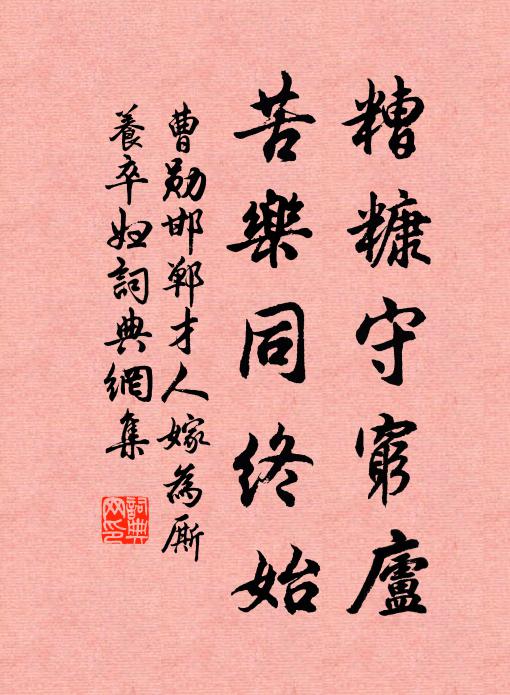 糟糠守窮廬
苦樂同終始
曹勛邯鄲才人嫁為厮
養卒婦詞典網集
詞典
网印